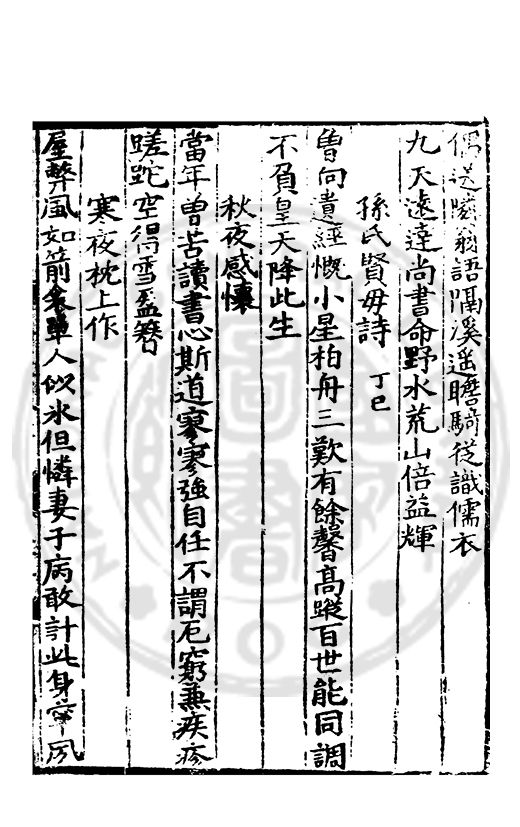 偶送隣翁語隔溪遥瞻騎從識儒衣
九天遠達尚書命野水荒山倍益輝
孫氏賢母詩 丁巳
曽向遺經慨小星柏舟三歎有餘馨髙蹤百世能同調
不負皇天降此生
秋夜感懷
當年曽苦讀書心斯道寥寥強自任不謂厄窮兼疾疹
蹉跎空得雪盈簪
寒夜枕上作
屋弊風如箭衾單人似氷但憐妻子病敢計此身寧夙